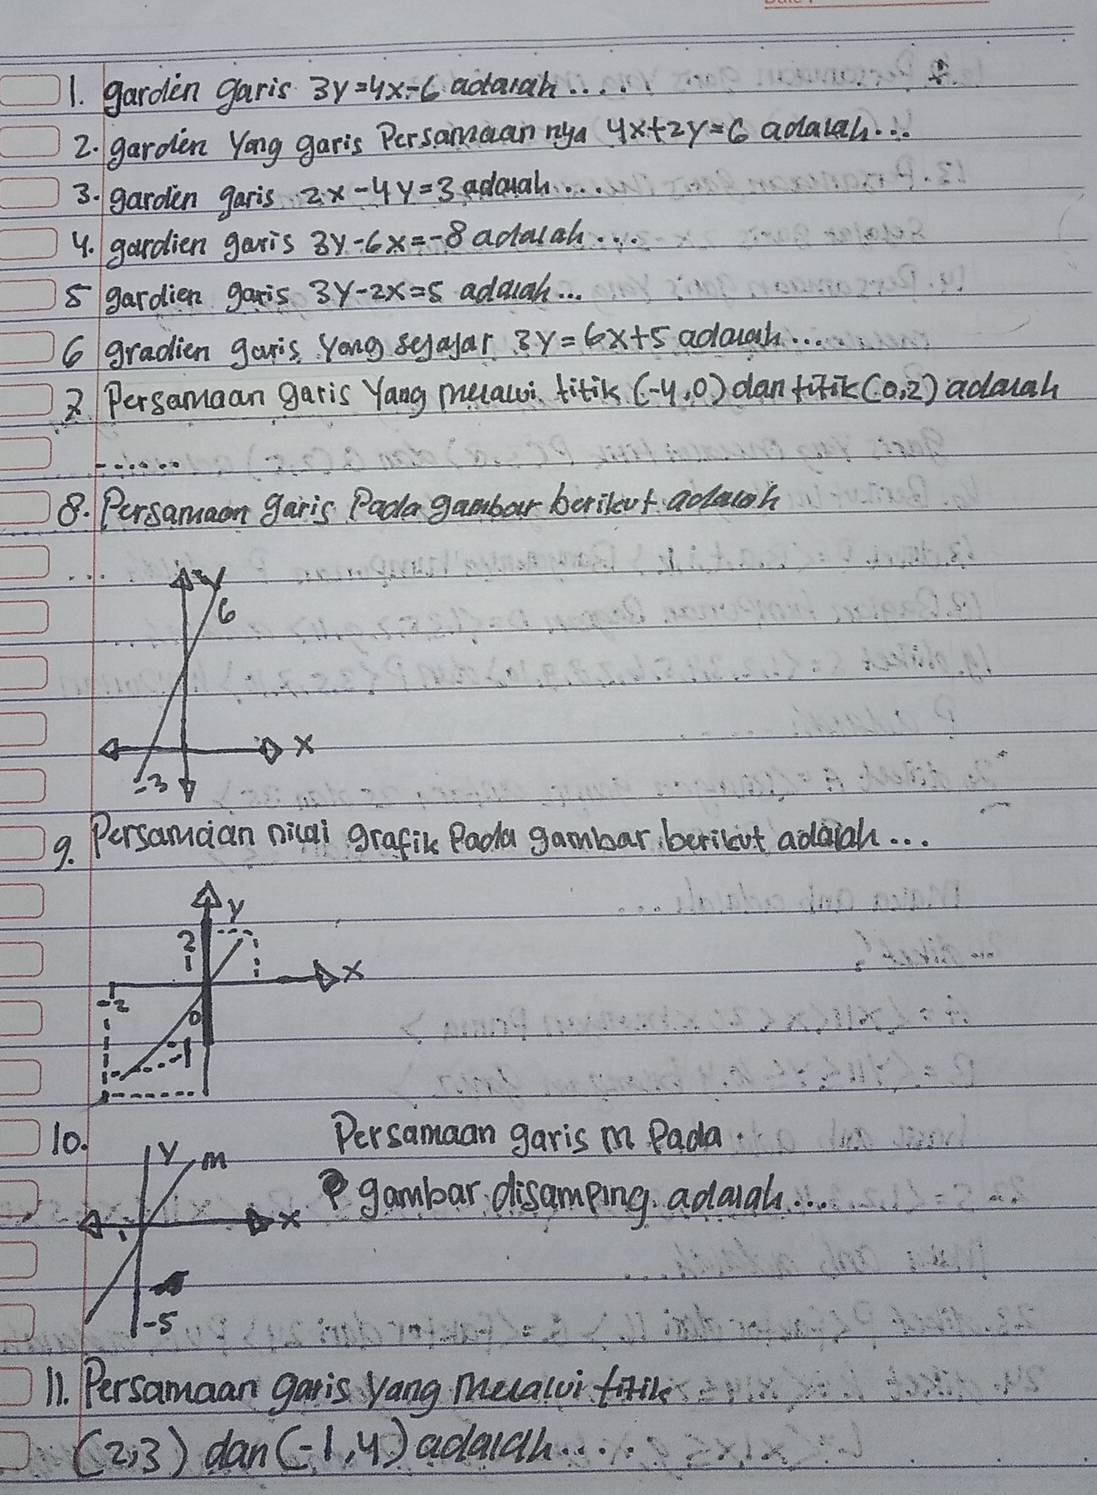 1. gardien garis 3y=4x-6 adalah....
2. gardien Yang garis Persamaan nya 4x+2y=6 adalah...
3. gardien garis 2x-4y=3 adalah...
4. gardien garis 3y-6x=-8 adalah...
5 gardien garis 3y-2x=5 adalah...
6 gradien garis Yang sejajar 3y=6x+5 adalah...
7. Persamaan garis Yang melalui titik (-4,0) dan titik (0,2) adalah
......
8. Persamaan garis Pada gambar berikut adalah
...
y
6
x
-3
9. Persamaan nilai grafik Pada gambar berikut adalah...
y
2
1
x
-2
0
-1
10. Persamaan garis m Pada
y m
gambar disamping adalah...
x
-5
11. Persamaan garis yang melalui titik
(2,3) dan (-1,4) adalah....